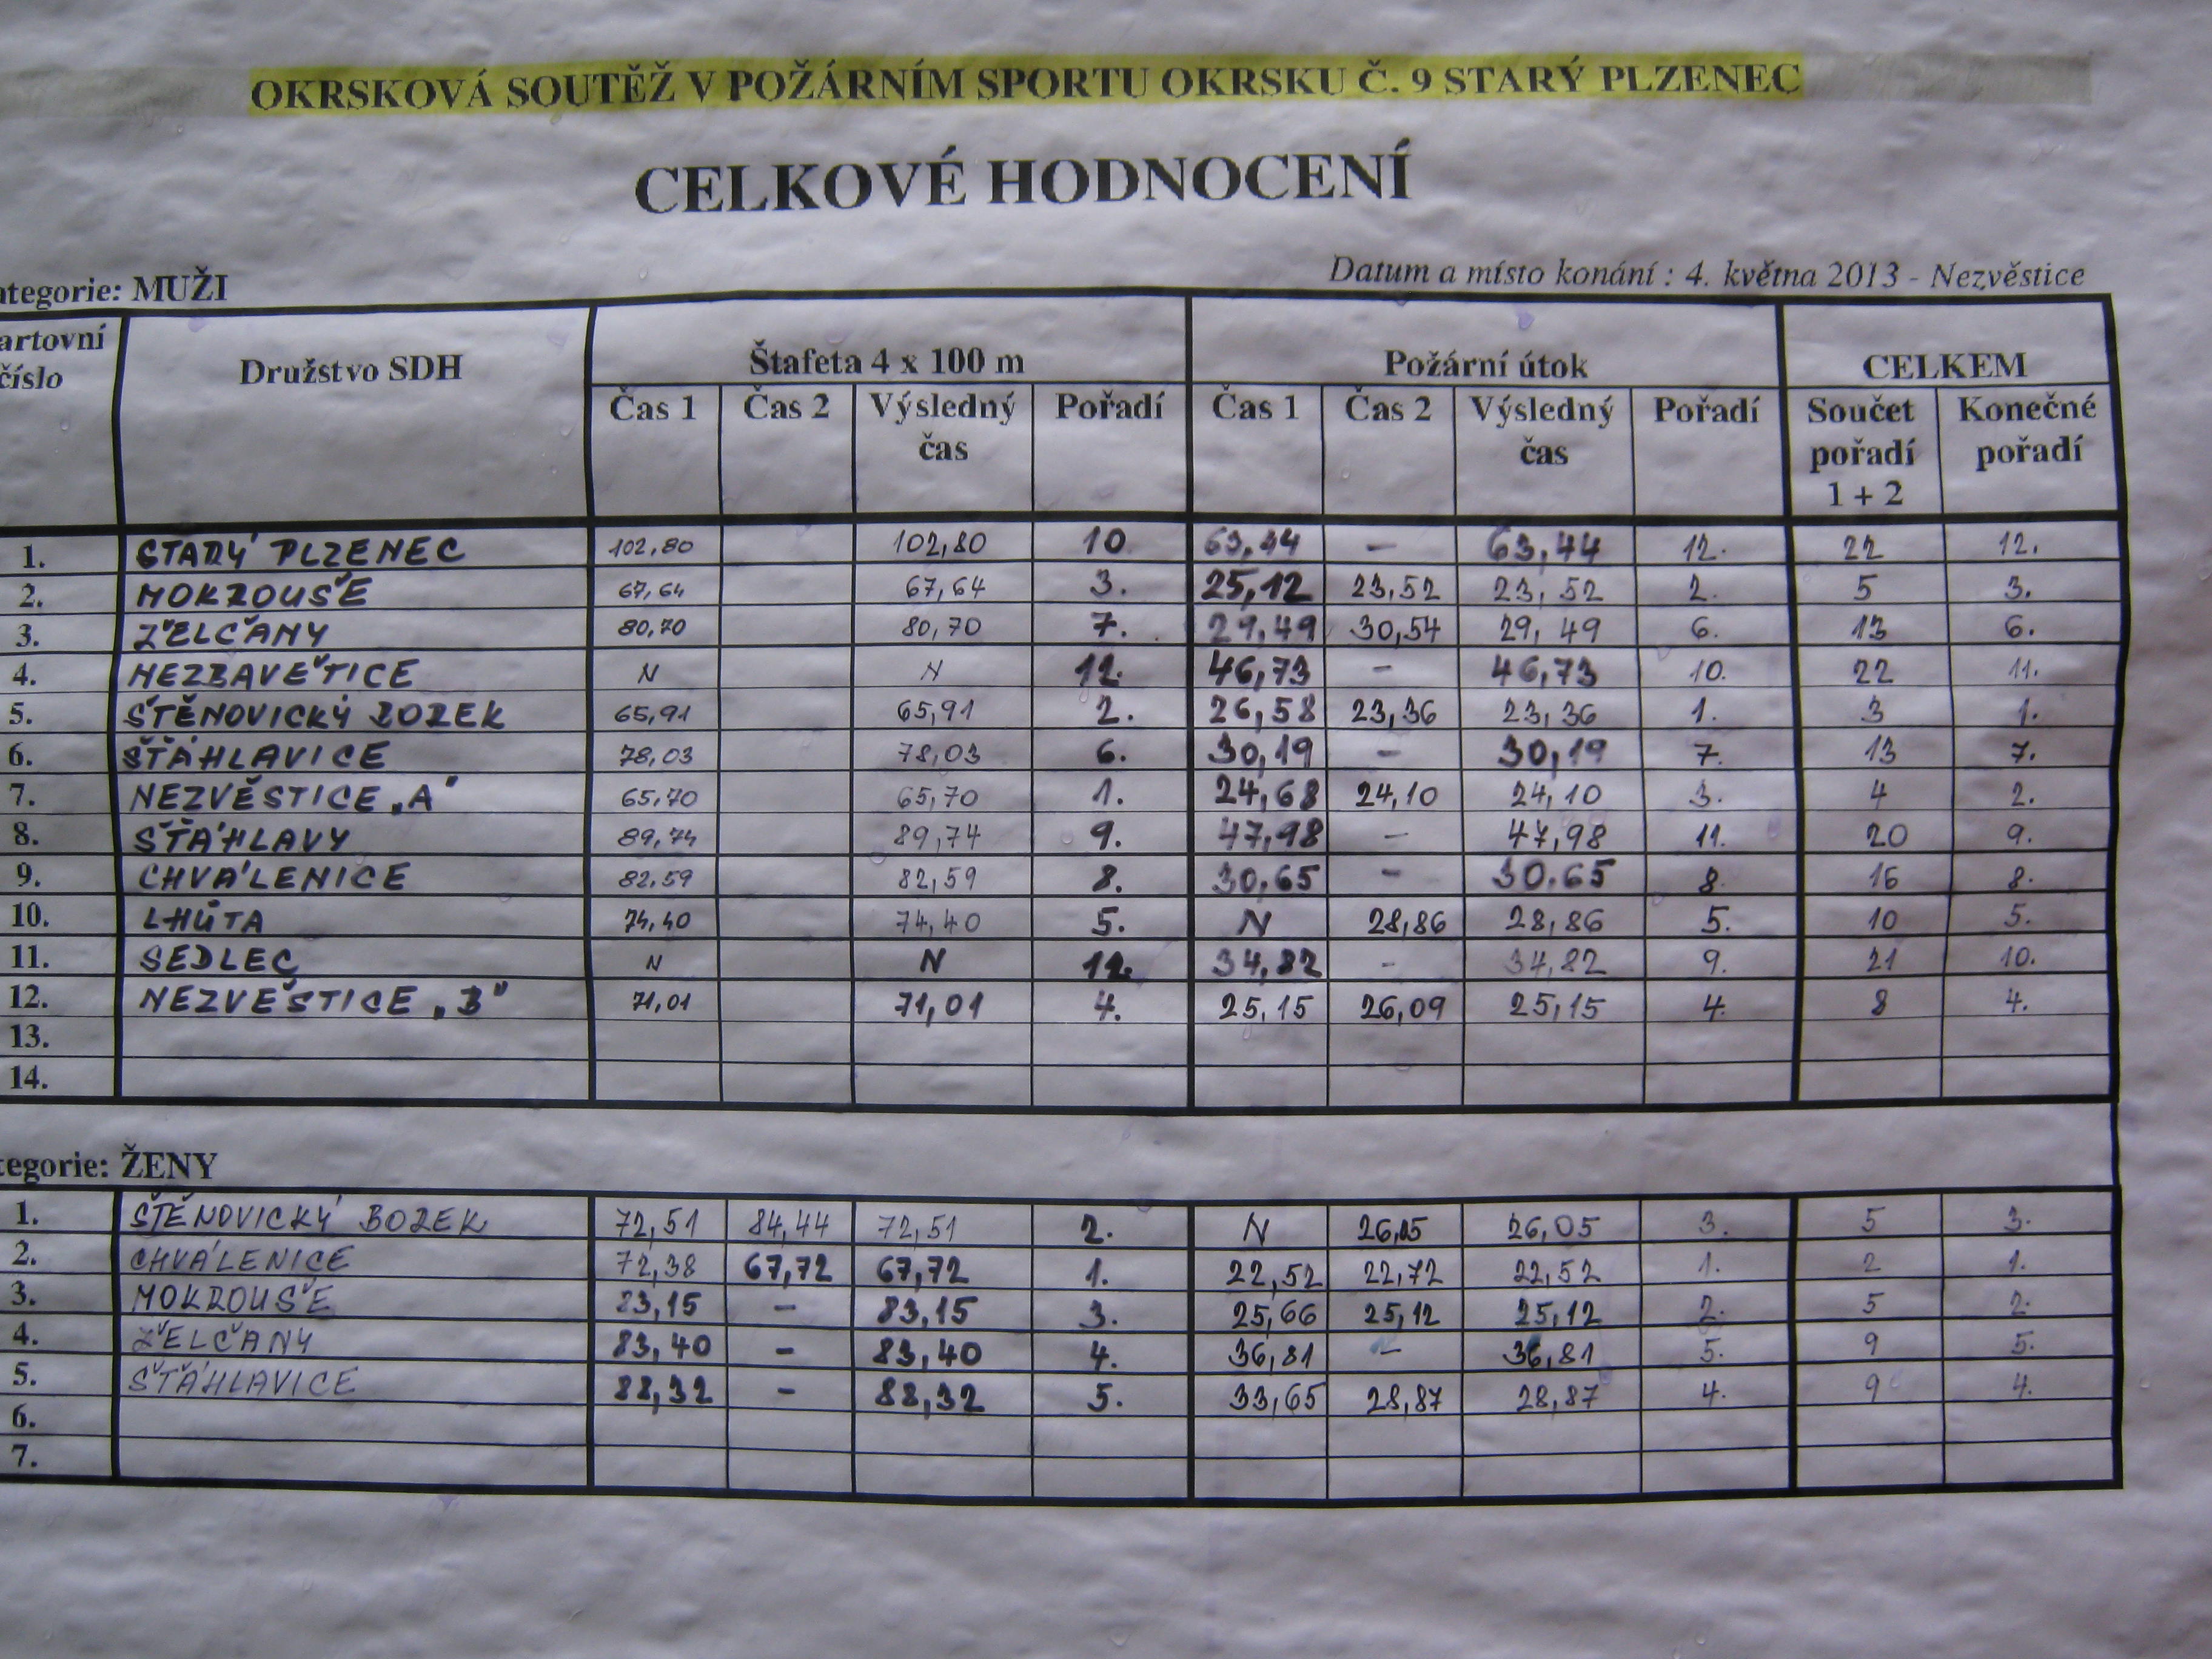 OKRSKOVÁ SOUTĚŽ V POŽÁRNÍM SPORTU OKRSKU Č. 9 STARÝ PLZENEC
CELKOVÉ HODNOCENÍ
ategorie: MUŽI Datum a místo konání : 4. května 2013 - Nezvěstice
artovní číslo Družstvo SDH Štafeta 4 x 100 m Požární útok CELKEM
Čas 1 Čas 2 Výsledný čas Pořadí Čas 1 Čas 2 Výsledný čas Pořadí Součet pořadí 1 + 2 Konečné pořadí
1. STARÝ PLZENEC 102,80 102,80 10 63,44 - 63,44 12. 22 12.
2. MOKROUŠE 67,64 67,64 3. 25,12 23,52 23,52 2. 5 3.
3. ŽELČANY 80,70 80,70 7. 29,49 30,54 29,49 6. 13 6.
4. NEZBAVĚTICE N N 12. 46,73 - 46,73 10. 22 11.
5. ŠTĚNOVICKÝ BOREK 65,91 65,91 2. 26,58 23,36 23,36 1. 3 1.
6. ŠŤÁHLAVICE 78,03 78,03 6. 30,19 - 30,19 7. 13 7.
7. NEZVĚSTICE „A" 65,70 65,70 1. 24,68 24,10 24,10 3. 4 2.
8. ŠŤÁHLAVY 89,74 89,74 9. 47,98 - 47,98 11. 20 9.
9. CHVÁLENICE 82,59 82,59 8. 30,65 - 30,65 8. 16 8.
10. LHŮTA 74,40 74,40 5. N 28,86 28,86 5. 10 5.
11. SEDLEC N N 12. 34,82 - 34,82 9. 21 10.
12. NEZVĚSTICE „B" 71,01 71,01 4. 25,15 26,09 25,15 4. 8 4.
13.
14.
tegorie: ŽENY
1. ŠTĚNOVICKÝ BOREK 72,51 84,44 72,51 2. N 26,05 26,05 3. 5 3.
2. CHVÁLENICE 72,38 67,72 67,72 1. 22,52 22,72 22,52 1. 2 1.
3. MOKROUŠE 83,15 - 83,15 3. 25,66 25,12 25,12 2. 5 2.
4. ŽELČANY 83,40 - 83,40 4. 36,81 - 36,81 5. 9 5.
5. ŠŤÁHLAVICE 88,32 - 88,32 5. 33,65 28,87 28,87 4. 9 4.
6.
7.